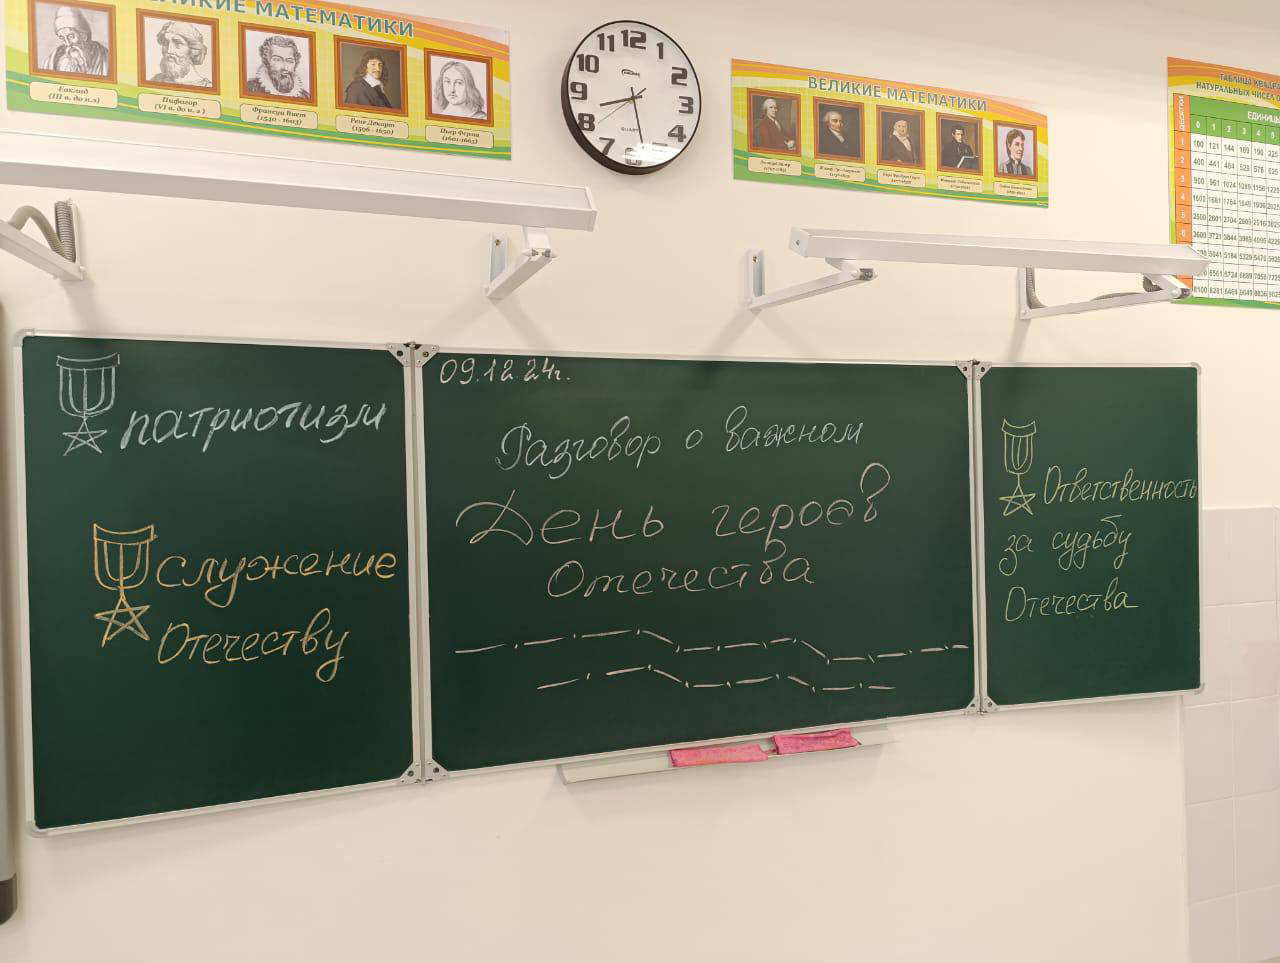 ВЕЛИКИЕ МАТЕМАТИКИ
Евклид
(III в. до н.э)
Пифагор
(VI в. до н. э)
Франсуа Виет
(1540 - 1603)
Рене Декарт
(1596 - 1650)
Пьер Ферма
(1601-1665)
12
1
2
3
4
6
7
8
9
10
11
ВЕЛИКИЕ МАТЕМАТИКИ
ТАБЛИЦА КВАДРА
НАТУРАЛЬНЫХ ЧИСЕЛ О
ДЕСЯТКИ
ЕДИНИЦЫ
0 1 2 3 4 5
1 100 121 144 169 196 225
2 400 441 484 529 576 625
3 900 961 1024 1089 1156 1225
4 1600 1681 1764 1849 1936 2025
5 2500 2601 2704 2809 2916 3025
6 3600 3721 3844 3969 4096 4225
5041 5184 5329 5476 5625
6561 6724 6889 7056 7225
8100 8281 8464 8649 8836 9025
патриотизм
служение
Отечеству
09.12.24г.
Разговор о важном
День героев
Отечества
Ответственность
за судьбу
Отечества